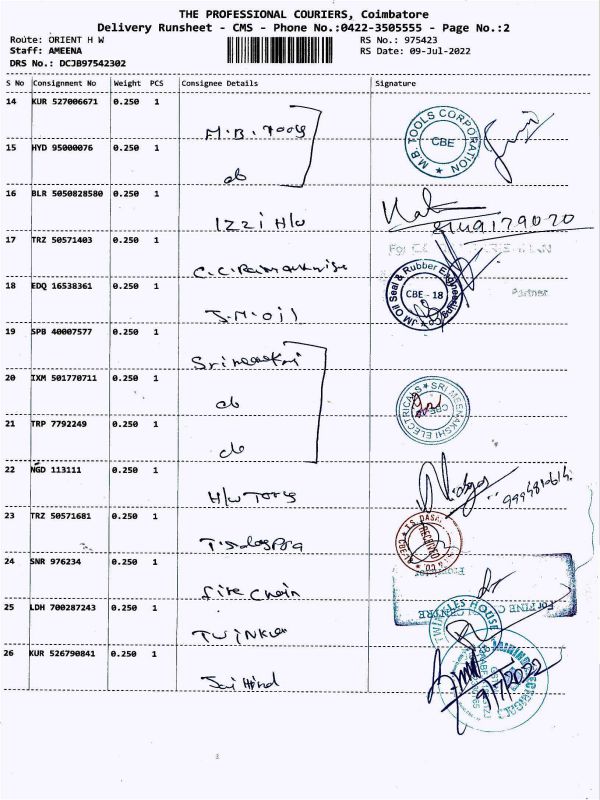 THE PROFESSIONAL COURIERS, Coimbatore
Delivery Runsheet - CMS - Phone No.:0422-3505555 - Page No.:2
Route: ORIENT H W
RS No.: 975423
Staff: AMEENA
RS Date: 09-Jul-2022
DRS No.: DCJB97542302
S No Consignment No Weight PCS Consignee Details Signature
14 KUR 527006671 0.250 1 M.B. Tools
M.B. TOOLS CORPORATION CBE
15 HYD 95000076 0.250 1 do
16 BLR 5050828580 0.250 1 Izzi H/w
17 TRZ 50571403 0.250 1 C.C.
18 EDQ 16538361 0.250 1 J.M.Oil
JM Oil Seal & Rubber CBE - 18
Partner
19 SPB 40007577 0.250 1
20 IXM 501770711 0.250 1 do
SRI MEENAKSHI ELECTRICALS CBE
21 TRP 7792249 0.250 1 do
22 NGD 113111 0.250 1 H/w Tools
23 TRZ 50571681 0.250 1
RECEIVED
24 SNR 976234 0.250 1 Fire Chain
25 LDH 700287243 0.250 1 Twinkle
TWINKLES HOUSE
26 KUR 526790841 0.250 1 Jai Hind
9/7/2022